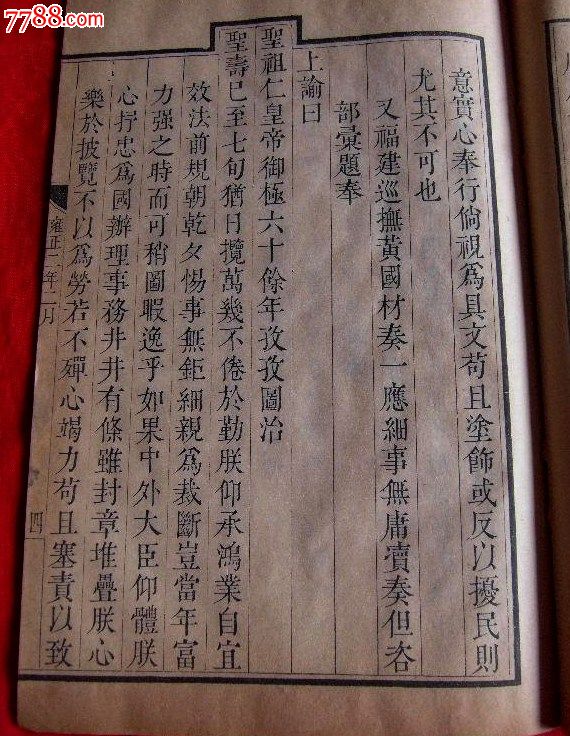 7788.com
意實心奉行倘視爲具文苟且塗飾或反以擾民則
尤其不可也
又福建巡撫黃國材奏一應細事無庸瀆奏但咨
部彙題奉
上諭曰
聖祖仁皇帝御極六十餘年孜孜圖治
聖壽已至七旬猶日攬萬幾不倦於勤朕仰承鴻業自宜
效法前規朝乾夕惕事無鉅細親爲裁斷豈當年富
力强之時而可稍圖暇逸乎如果中外大臣仰體朕
心抒忠爲國辦理事務井井有條雖封章堆疊朕心
樂於披覽不以爲勞若不殫心竭力苟且塞責以致
雍正二年二月
四